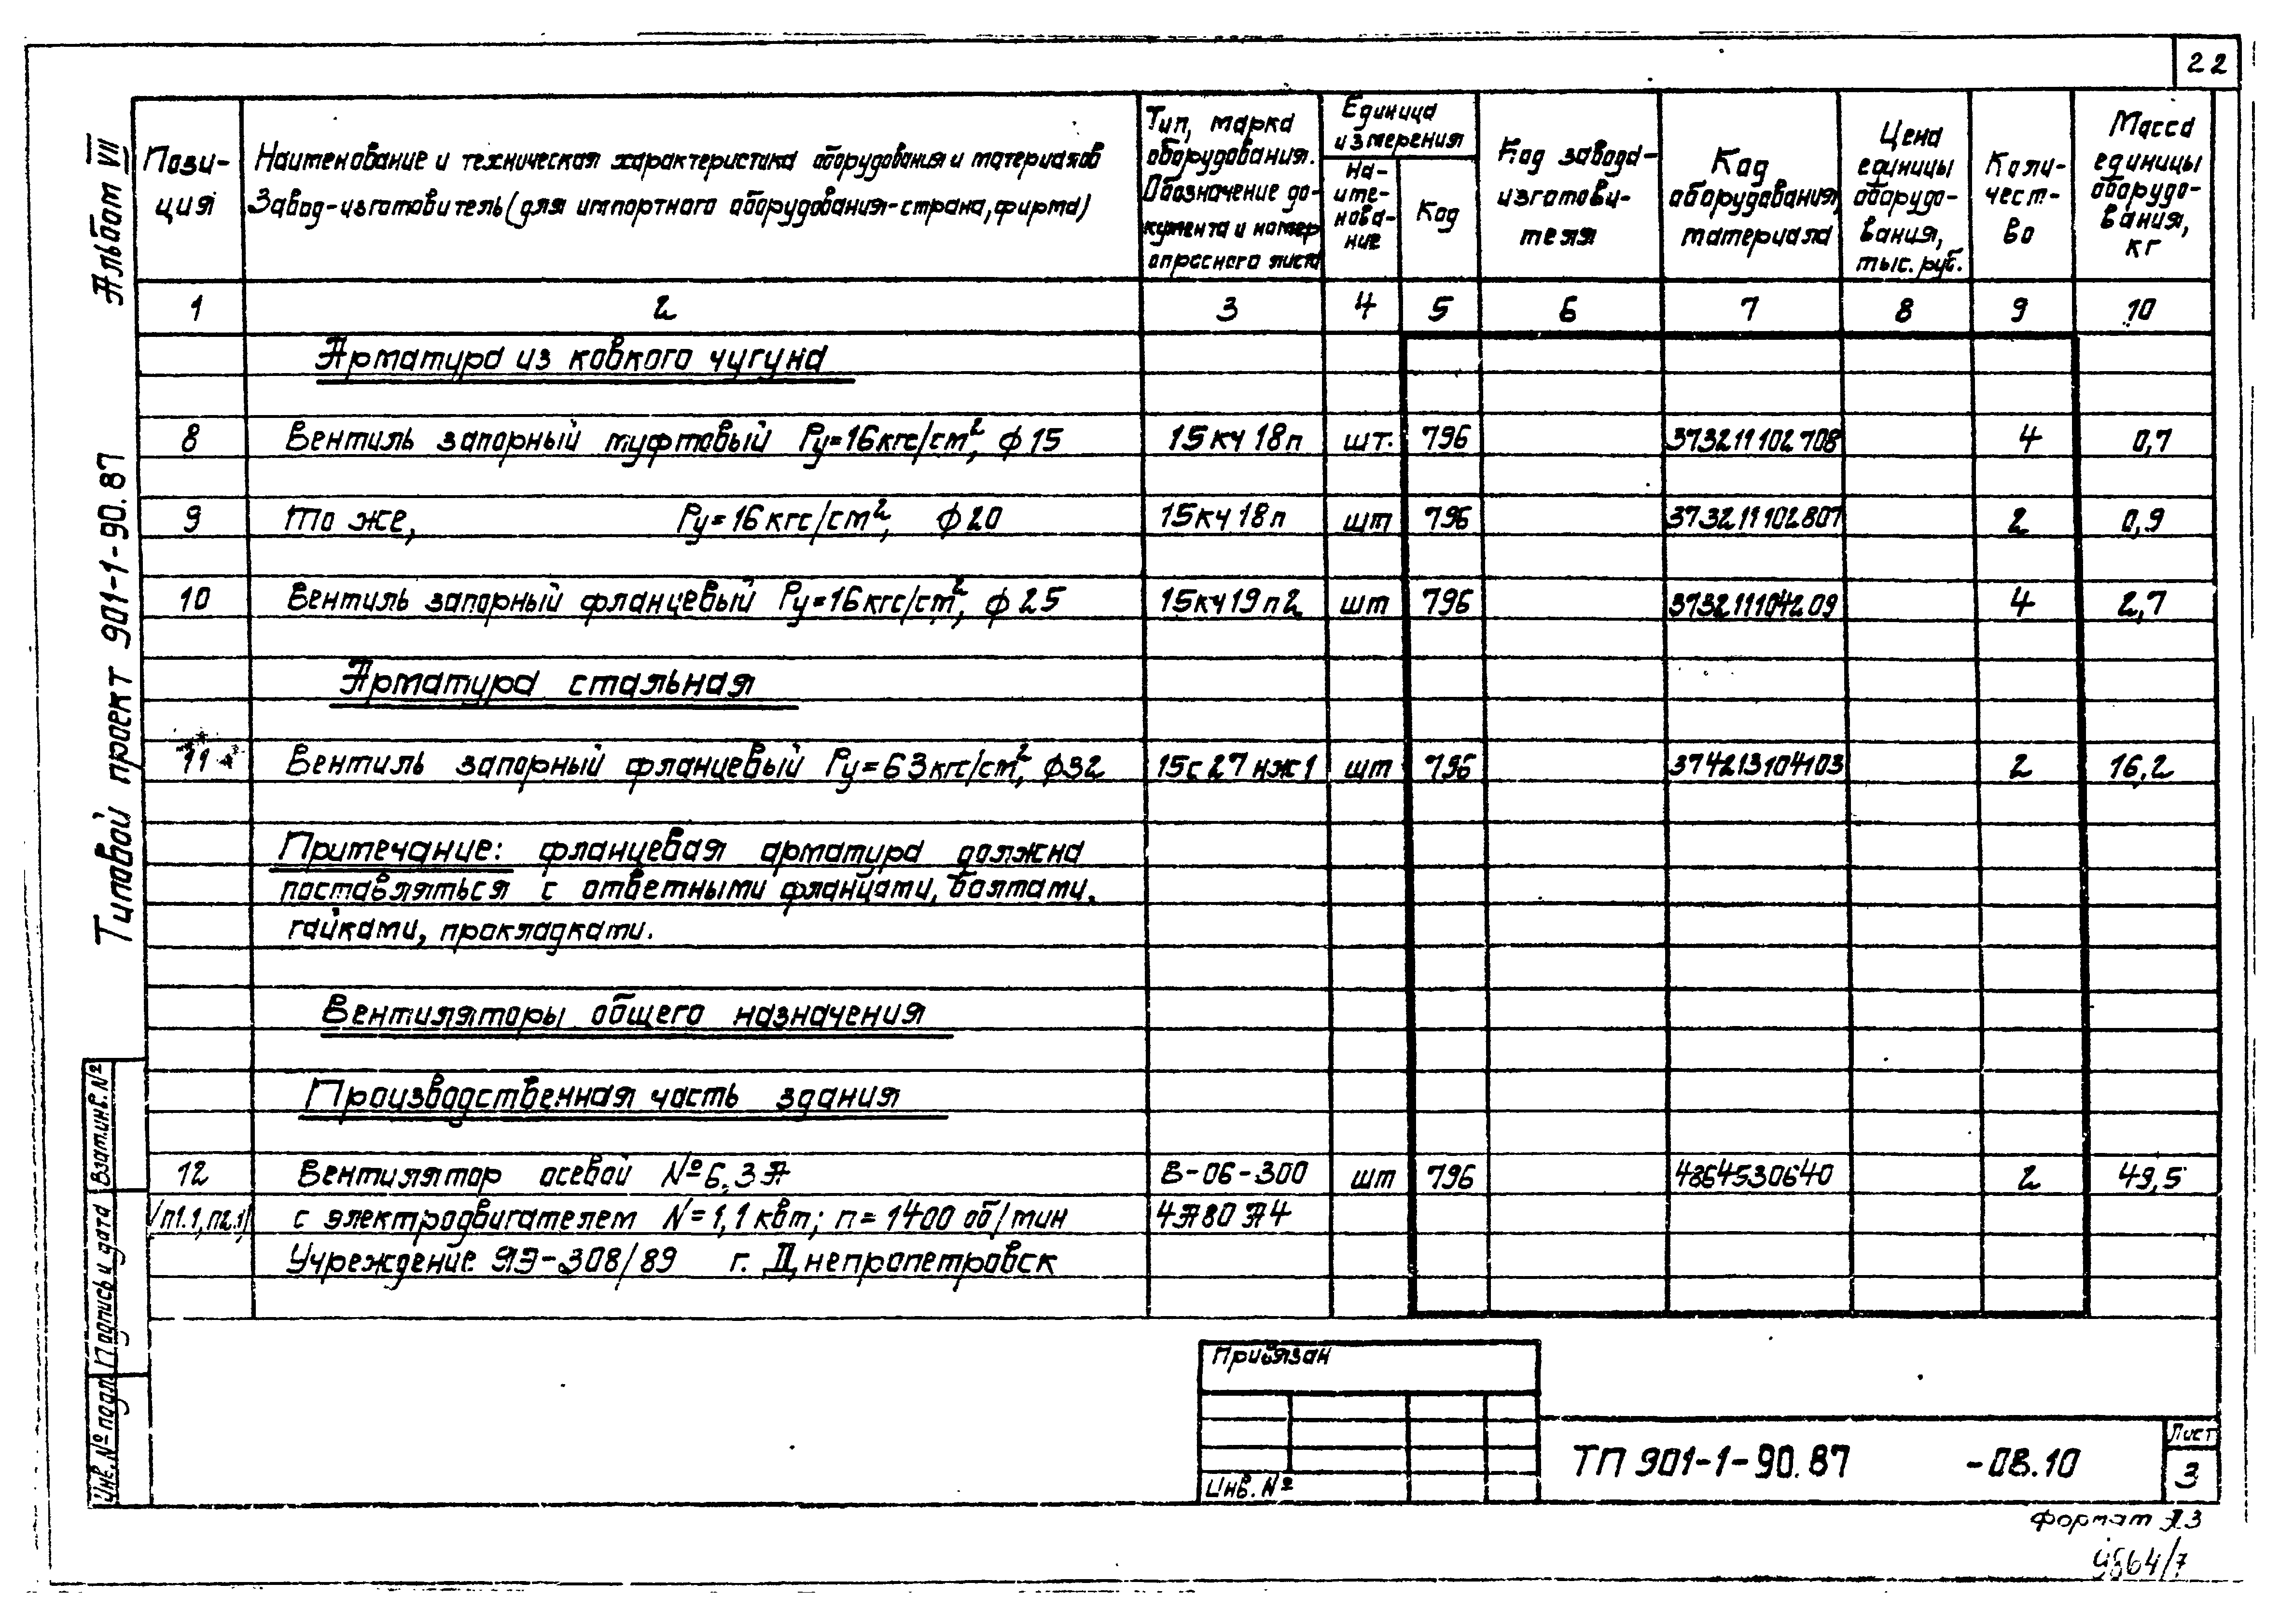 22
Альбом VII
Типовой проект 901-1-90.87
Пози-
ция
Наименование и техническая характеристика оборудования и материалов
Завод-изготовитель (для импортного оборудования-страна, фирма)
Тип, марка
оборудования.
Обозначение до-
кумента и номер
опросного листа
Единица
измерения
На-
име-
нова-
ние
Код
Код завода-
изготови-
теля
Код
оборудования,
материала
Цена
единицы
оборудо-
вания,
тыс. руб.
Коли-
чест-
во
Масса
единицы
оборудо-
вания,
кг
1 2 3 4 5 6 7 8 9 10
Арматура из ковкого чугуна
8 Вентиль запорный муфтовый Ру=16кгс/см², ф15 15кч18п шт. 796 373211102708 4 0,7
9 То же, Ру=16кгс/см², ф20 15кч18п шт 796 373211102807 2 0,9
10 Вентиль запорный фланцевый Ру=16кгс/см², ф25 15кч19п2 шт 796 373211104209 4 2,7
Арматура стальная
11 Вентиль запорный фланцевый Ру=63кгс/см², ф32 15с27нж1 шт 796 374213104103 2 16,2
Примечание: фланцевая арматура должна
поставляться с ответными фланцами, болтами,
гайками, прокладками.
Вентиляторы общего назначения
Производственная часть здания
12 Вентилятор осевой №6,3А В-06-300 шт 796 4864530640 2 49,5
/П1.1, П2.1/ с электродвигателем N=1,1квт; n=1400 об/мин 4А80А4
Учреждение ЯЭ-308/89 г. Днепропетровск
Взам.инв.№
Подпись и дата
Инв.№ подл
Привязан
Инв. №
ТП 901-1-90.87 -08.10
Лист
3
Формат А3
9864/7